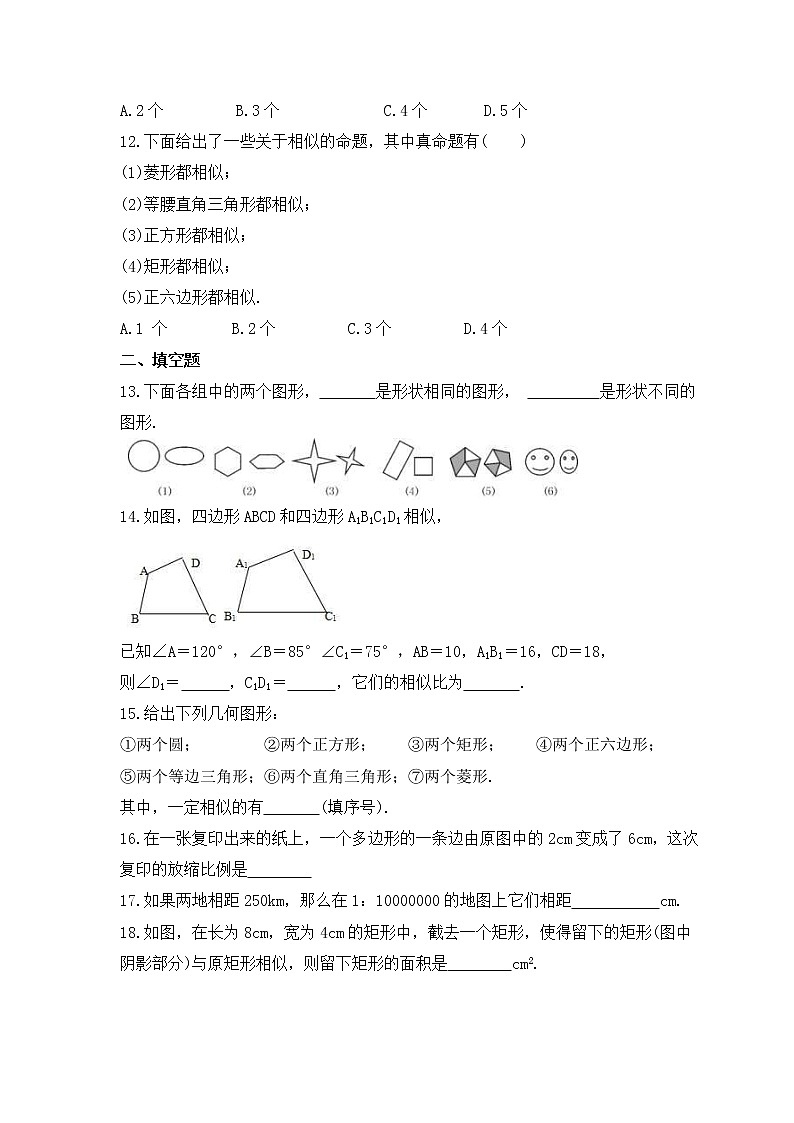 A.2个 B.3个 C.4个 D.5个
12.下面给出了一些关于相似的命题，其中真命题有( )
(1)菱形都相似；
(2)等腰直角三角形都相似；
(3)正方形都相似；
(4)矩形都相似；
(5)正六边形都相似.
A.1 个 B.2个 C.3个 D.4个
二、填空题
13.下面各组中的两个图形，______是形状相同的图形， ________是形状不同的
图形.
(1) (2) (3) (4) (5) (6)
14.如图，四边形ABCD和四边形A₁B₁C₁D₁相似，
A D B C A₁ D₁ B₁ C₁
已知∠A＝120°，∠B＝85°∠C₁＝75°，AB＝10，A₁B₁＝16，CD＝18，
则∠D₁＝______，C₁D₁＝______，它们的相似比为_______.
15.给出下列几何图形：
①两个圆； ②两个正方形； ③两个矩形； ④两个正六边形；
⑤两个等边三角形；⑥两个直角三角形；⑦两个菱形.
其中，一定相似的有_______(填序号).
16.在一张复印出来的纸上，一个多边形的一条边由原图中的2cm变成了6cm，这次
复印的放缩比例是________
17.如果两地相距250km，那么在1：10000000的地图上它们相距___________cm.
18.如图，在长为8cm，宽为4cm的矩形中，截去一个矩形，使得留下的矩形(图中
阴影部分)与原矩形相似，则留下矩形的面积是________cm².